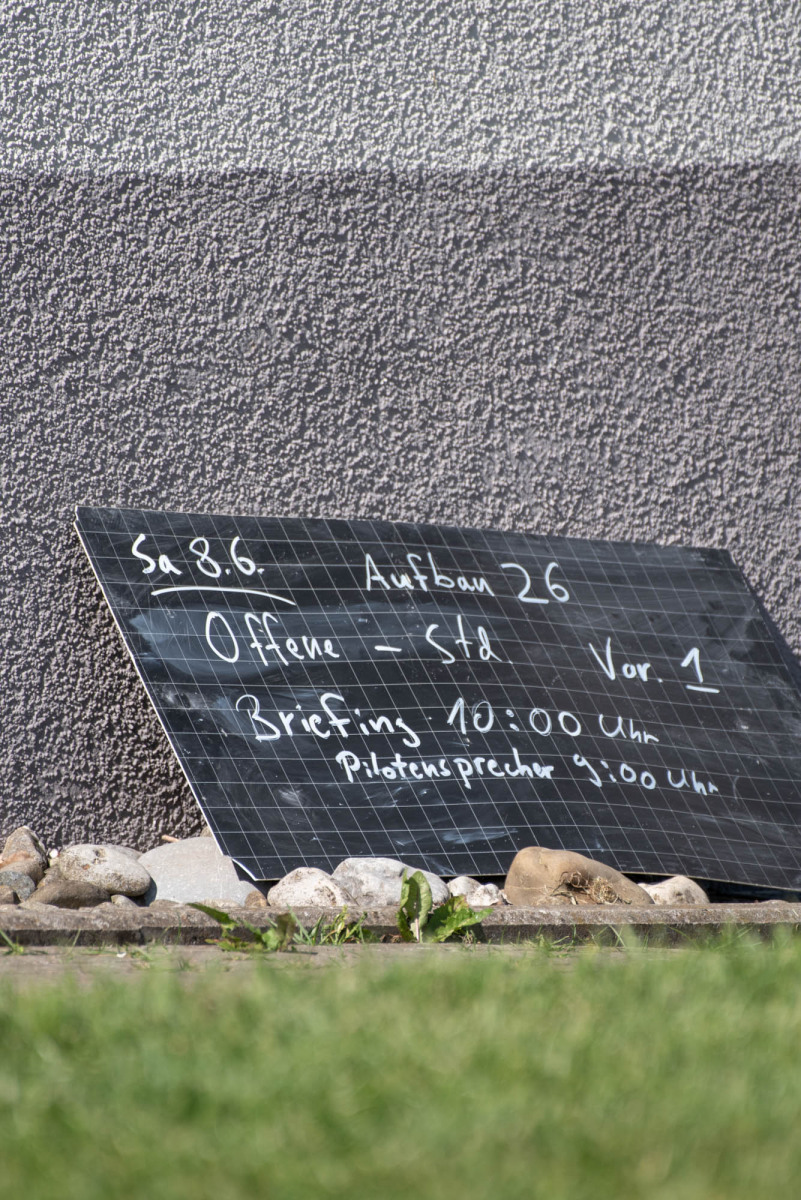 Sa 8.6. Aufbau 26
Offene - Std. Vor. 1
Briefing 10:00 Uhr
Pilotensprecher 9:00 Uhr